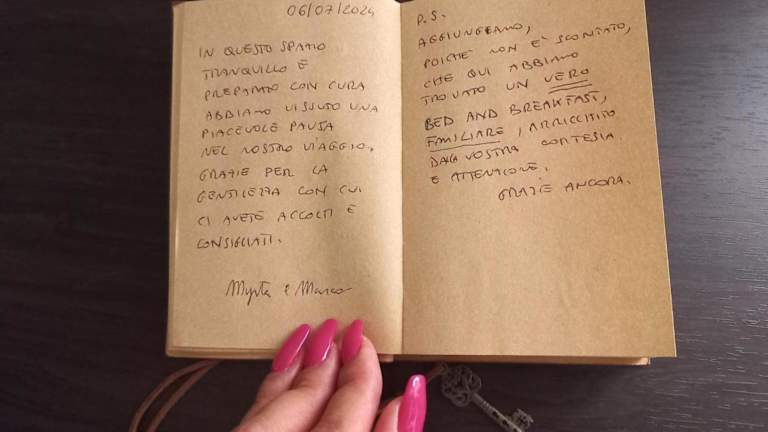 06/07/2024
IN QUESTO SPAZIO
TRANQUILLO E
PREPARATO CON CURA
ABBIAMO VISSUTO UNA
PIACEVOLE PAUSA
NEL NOSTRO VIAGGIO.
GRAZIE PER LA
GENTILEZZA CON CUI
CI AVETE ACCOLTI E
CONSIGLIATI.
Myrta e Marco
P.S.
AGGIUNGIAMO,
POICHÉ NON È SCONTATO,
CHE QUI ABBIAMO
TROVATO UN VERO
BED AND BREAKFAST,
FAMILIARE, ARRICCHITO
DALLA VOSTRA CORTESIA
E ATTENZIONE.
GRAZIE ANCORA.